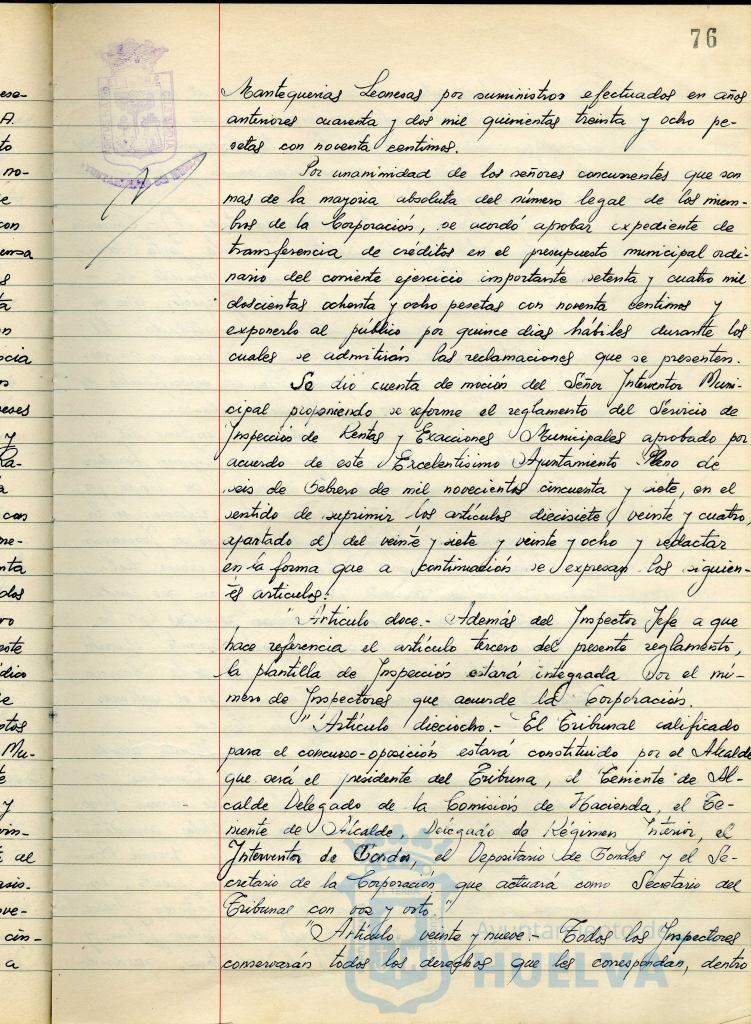 76
Mantequerias Leonesas por suministros efectuados en años
anteriores cuarenta y dos mil quinientas treinta y ocho pe-
setas con noventa centimos.
Por unanimidad de los señores concurrentes que son
mas de la mayoria absoluta del número legal de los miem-
bros de la Corporación, se acordó aprobar expediente de
transferencia de créditos en el presupuesto municipal ordi-
nario del corriente ejercicio importante setenta y cuatro mil
doscientas ochenta y ocho pesetas con noventa centimos y
exponerlo al público por quince dias hábiles durante los
cuales se admitirán las reclamaciones que se presenten.
Se dió cuenta de moción del Señor Interventor Muni-
cipal proponiendo se reforme el reglamento del Servicio de
Inspección de Rentas y Exacciones Municipales aprobado por
acuerdo de este Excelentisimo Ayuntamiento Pleno de
seis de Febrero de mil novecientos cincuenta y siete, en el
sentido de suprimir los artículos diecisiete, veinte y cuatro,
apartado d) del veinte y siete y veinte y ocho y redactar
en la forma que a continuación se expresan los siguien-
tes artículos:
"Artículo doce.- Además del Inspector Jefe a que
hace referencia el artículo tercero del presente reglamento,
la plantilla de Inspección estará integrada por el nú-
mero de Inspectores que acuerde la Corporación.
"Artículo dieciocho.- El Tribunal calificado
para el concurso-oposición estará constituido por el Alcalde
que será el presidente del Tribuna, el Teniente de Al-
calde Delegado de la Comisión de Hacienda, el Te-
niente de Alcalde, Delegado de Régimen Interior, el
Interventor de Fondos, el Depositario de Fondos y el Se-
cretario de la Corporación que actuará como Secretario del
Tribunal con voz y voto."
"Artículo veinte y nueve.- Todos los Inspectores
conservarán todos los derechos que les correspondan, dentro
Ayuntamiento de
HUELVA